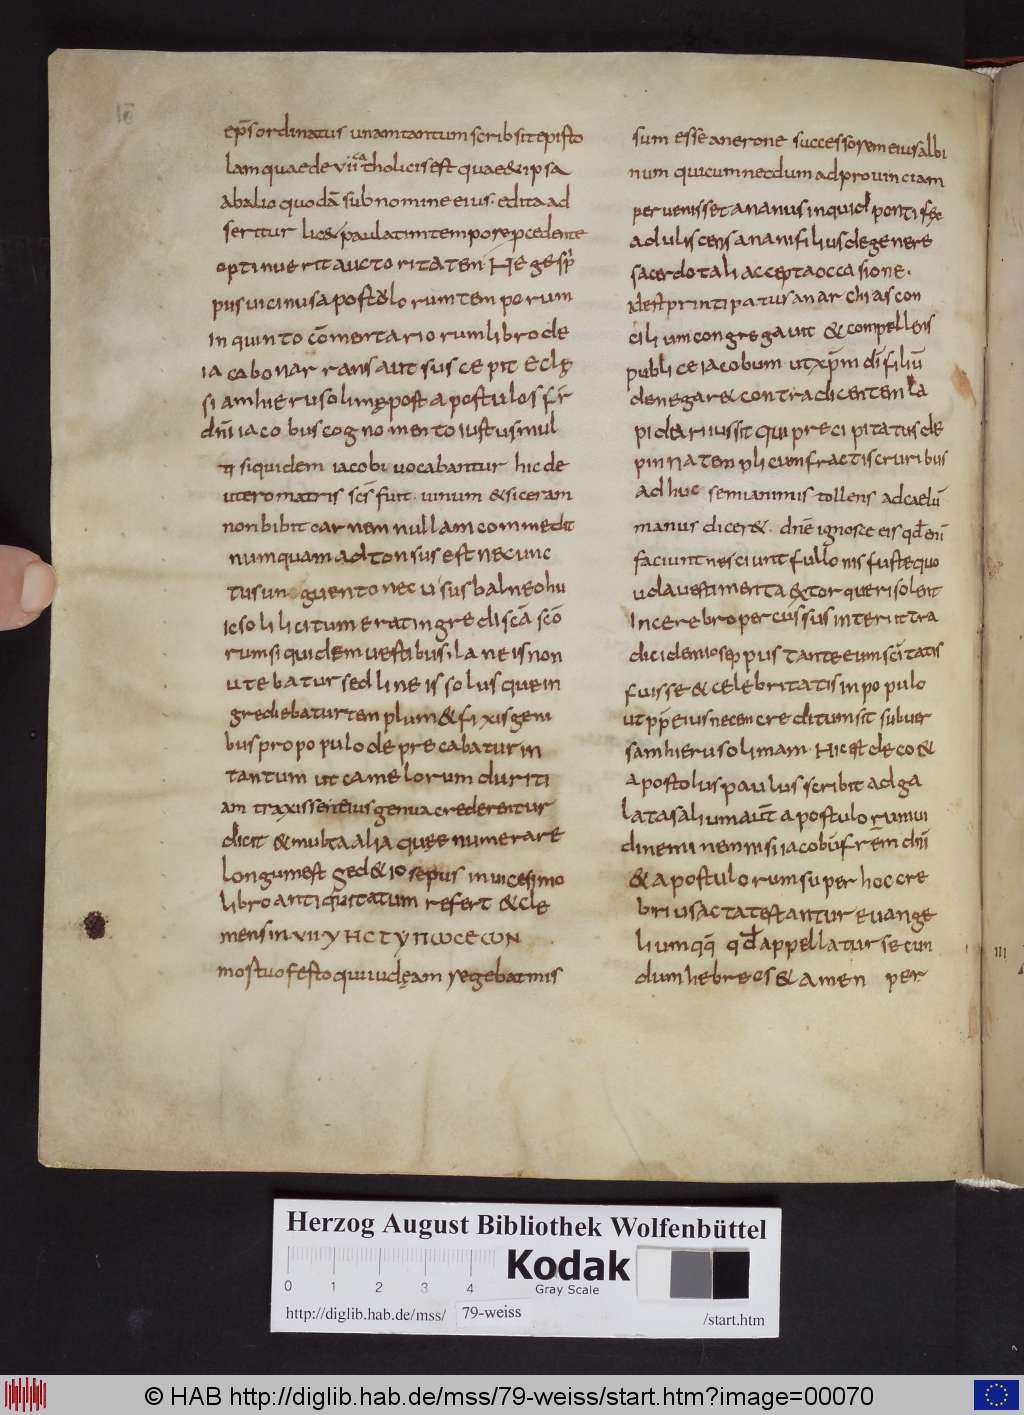 ep̄s ordinatus unam tantum scribsit episto
lam quae de vii catholicis est quae & ipsa
ab alio quodā sub nomine eius · edita ad
seritur lic& paulatim tempore pcedente
optinuerit auctoritatem Hegesip
pus uicinus apostolorum temporum
in quinto cōmentariorum libro de
iacabo narrans aut suscepit eclę
siam hierusolimę post apostulos fr̄
dn̄i iacobus cognomento iustus mul
ti siquidem iacobi uocabantur hic de
utero matris scīs fuit · uinum & siceram
non bibit carnem nullam commedit
numquam adtonsus est nec unc
tus unguento nec usus balneo hu
ic soli licitum erat ingredi scā scō
rum siquidem uestibus · laneis non
utebatur sed lineis solusque in
grediebatur templum & fixis geni
bus pro populo deprecabatur in
tantum ut camelorum duriti
am traxisse eius genua crederentur
dicit & multa alia quae numerare
longum est sed & iosepus in uicesimo
libro antiquitatum refert & cle
mens in · vii · y ΗCΤΥΠωCΕωΝ
mos tuo festo qui iudęam regebat mis
sum esse a nerone successorem eius albi
num qui cum necdum ad prouinciam
peruenisset ananus inquid pontifex
adulis cens anani filius de genere
sacerdotali accepta occasione ·
id est printipatus anarchias con
cilium congregauit & compellens
publice iacobum ut xp̄m dī filiū
denegar& contradicentem la
pidari iussit qui precipitatus de
pinna templi cum fractis cruribus
adhuc semianimis tollens ad caelū
manus dicer& · dnē ignosce eis qd̄ enī
faciunt nesciunt fullonis fuste quo
uda uestimenta &torqueri solent
in cerebro percussus interiit tra
dic idem ioseppus tante eum scītatis
fuisse & celebritatis in populo
ut pp̄ eius necem creditum sit subuer
sam hierusolimam · Hic est de eo &
apostolus paulus scribit ad ga
latas alium aut̄ apostulorum ui
di neminem nisi iacobū frēm dn̄i
& apostulorum super hoc cre
brius acta testantur euange
lium qq̄ qd̄ appellatur secun
dum hebreos & amen per
Herzog August Bibliothek Wolfenbüttel
0 1 2 3 4
Kodak
Gray Scale
http://diglib.hab.de/mss/ 79-weiss /start.htm
© HAB http://diglib.hab.de/mss/79-weiss/start.htm?image=00070